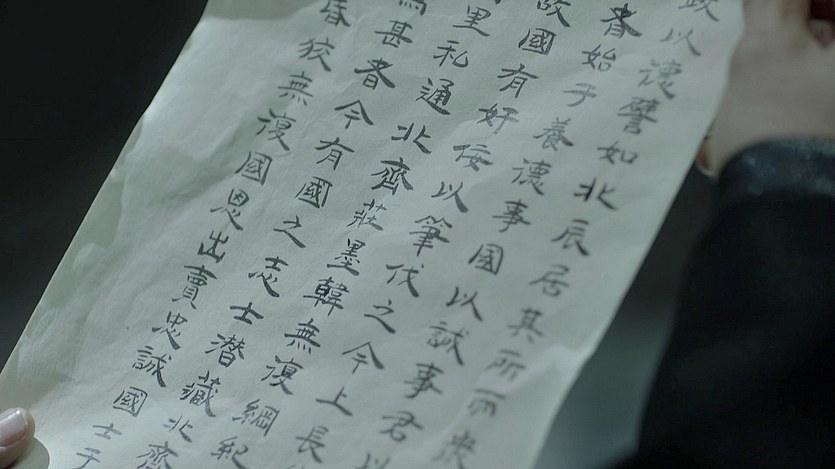 政以德譬如北辰居其所而衆
者始于養德事國以誠事君以
故國有奸佞以筆伐之今上長
里私通北齊莊墨韓無復綱紀
爲甚者今有國之志士潛藏北齊
昏狡無復國恩出賣忠誠國士于